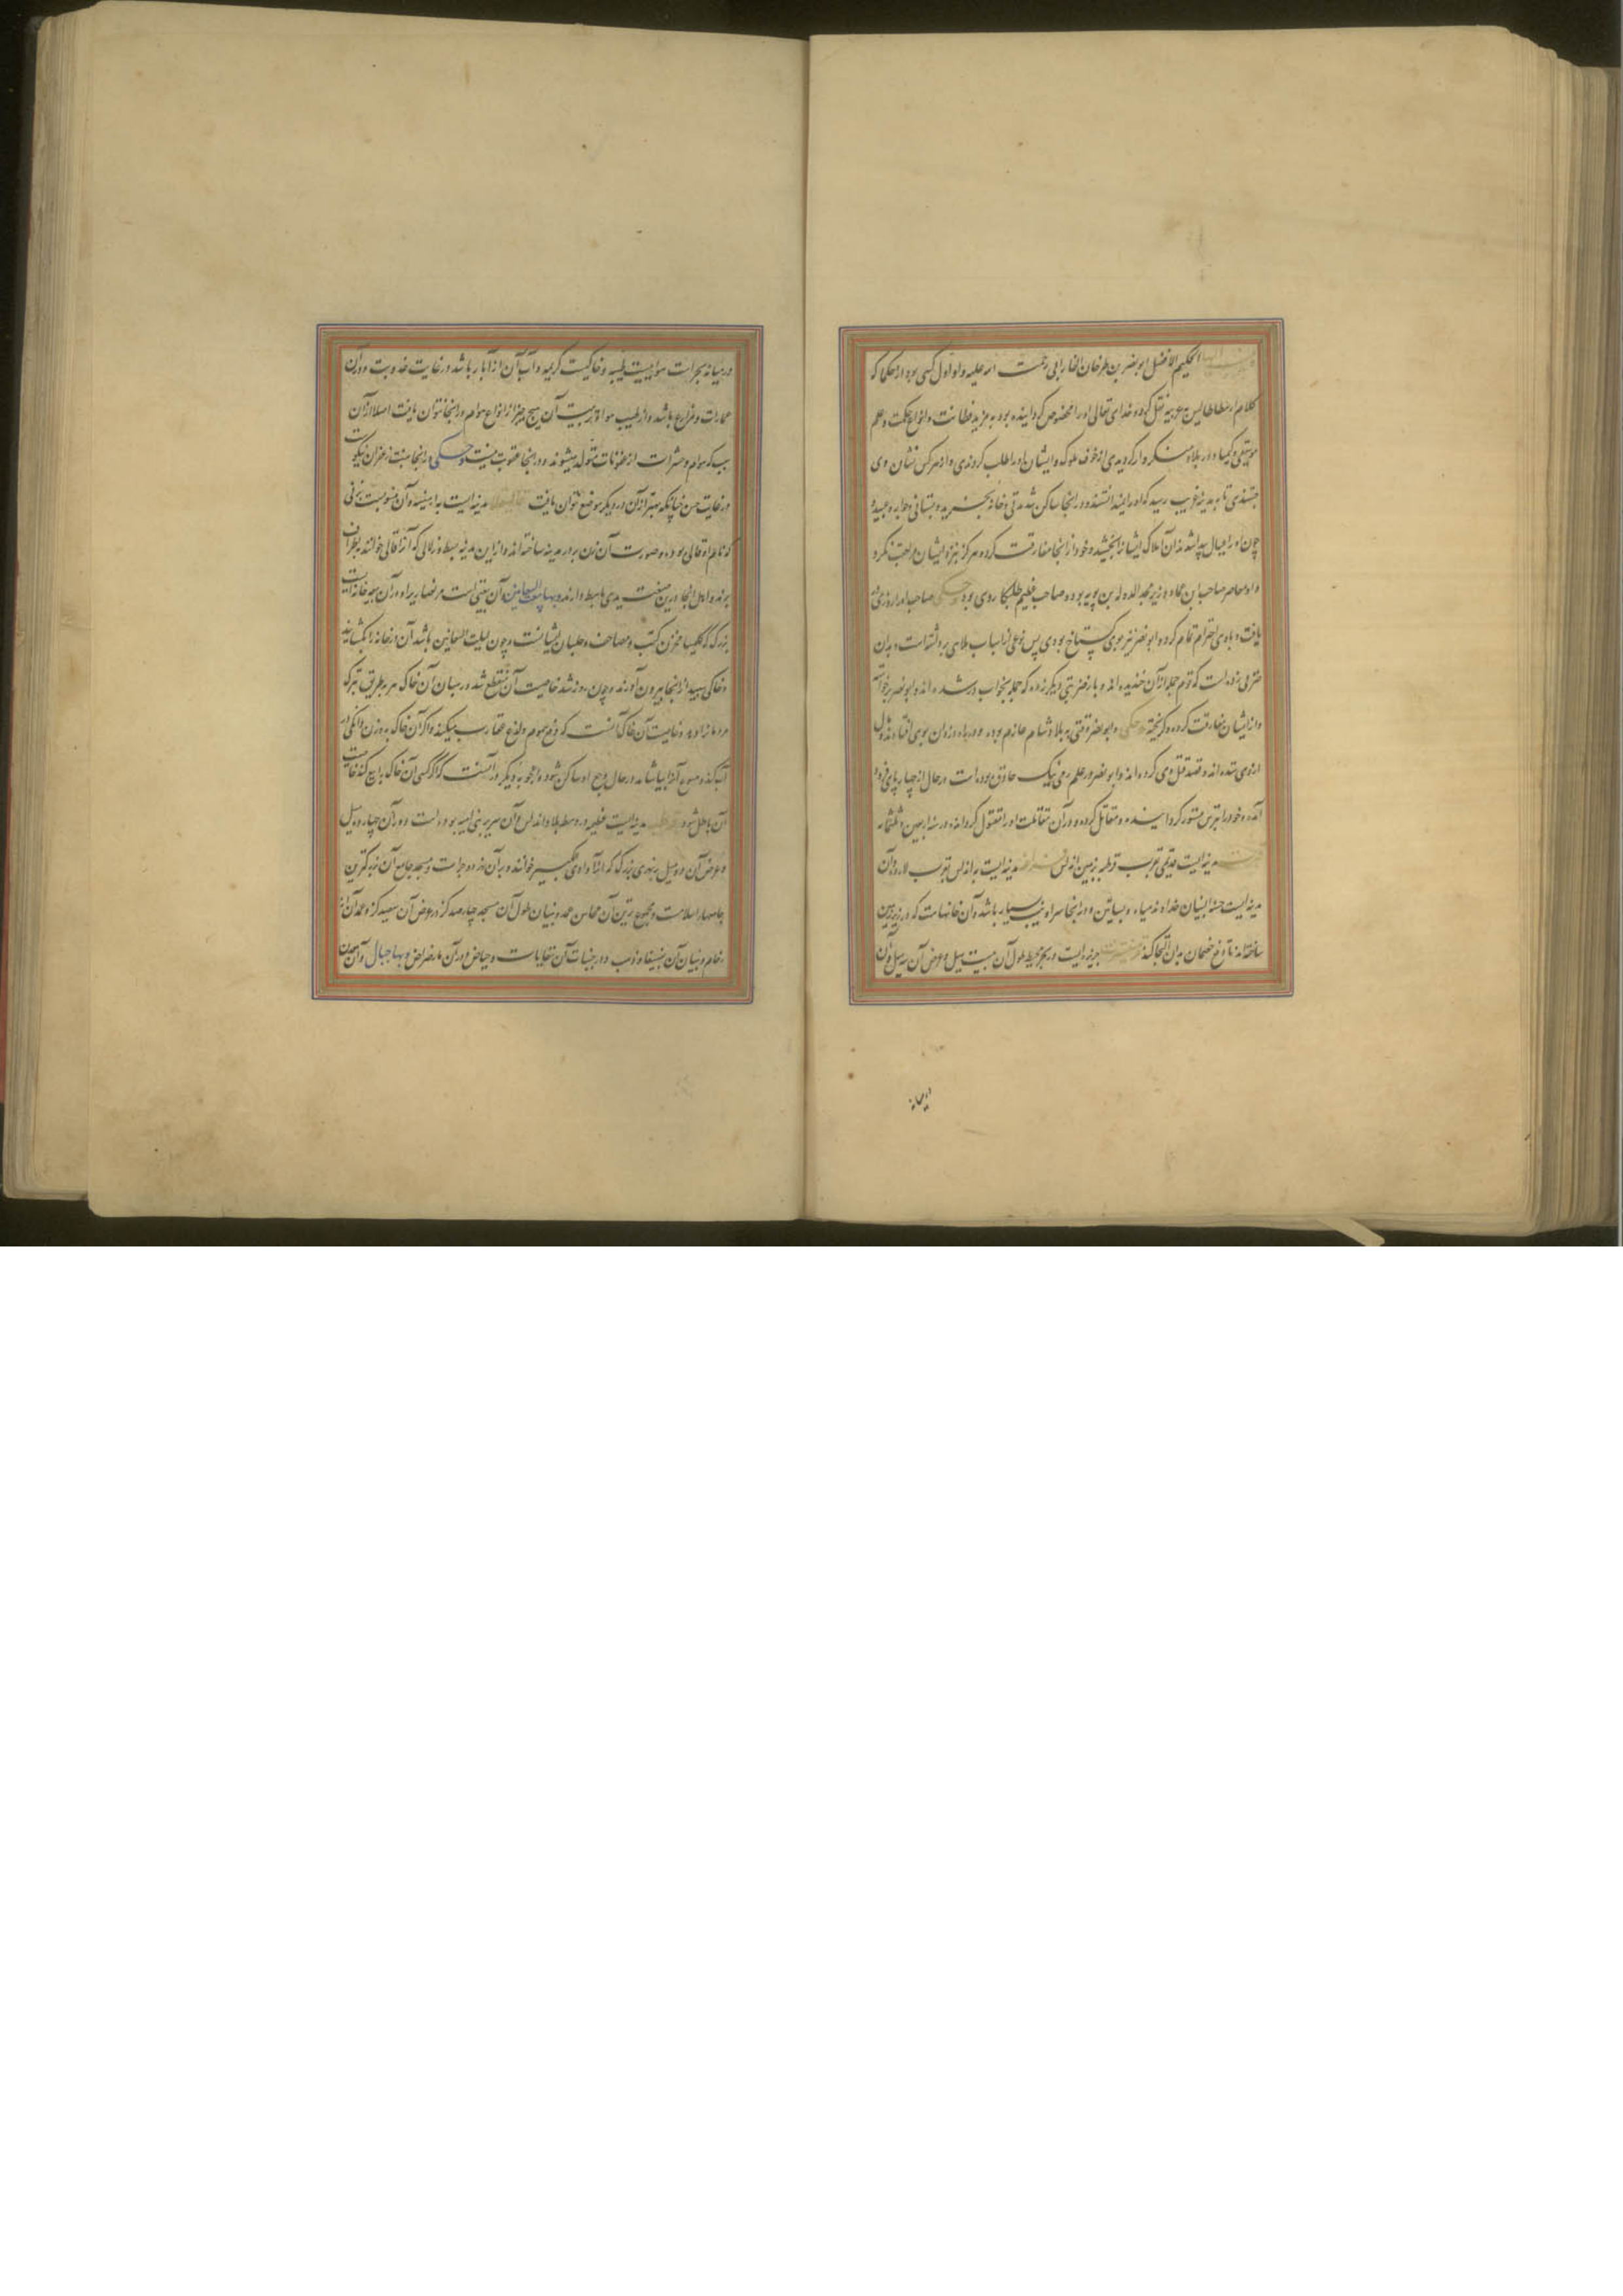 الحکیم الافضل ابو نصر بن طرخان الفارابی رحمت الله علیه و او اول کسی بود از حکما که
کلام ارسطاطالیس به عربیه نقل کرده و خدای تعالی او را مخصوص گردانیده بود به مزید فطانت و انواع حکمت و علم
موسیقی و کیمیا و در بلاد متنکروار گردیدی از خوف ملوک و ایشان او را طلب کردندی و از هر کس نشان وی
جستندی تا به مدینه غریب رسید که او را نمیدانستند و در آنجا ساکن شد مدتی و خانه بخرید و بستانی و جواری و عبید و
چون او را ملال پیدا شد از آن املاک ایشانرا بخشید و خود از آنجا مفارقت کرده و هرگز نزد ایشان مراجعت نکرد
و او معاصر صاحب ابن عباد وزیر مجد الدوله بن بویه بوده صاحب عظیم طلبکار وی بود حکی صاحب او را روزی
یافت و با وی احترام تمام کرد و ابو نصر نیز بوی گستاخ بودی پس نوعی از اسباب ملاهی برداشته است و بدان
ضربی زده است که قوم جمله از آن خندیده اند و بار ضربتی دیگر زده که جمله بخواب در شده اند و ابو نصر برخواست
و از ایشان مفارقت کرده و گریخته حکی و ابو نصر وقتی به بلاد شام عازم بوده و در راه دزدان بوی افتاده
از وی ستده اند و قصد قتل وی کرده اند و ابو نصر در علم رمی نیک حاذق بوده است در حال از چهارپای فرود
آمده و خود را بترس مستور گردانیده و مقاتل کرده و در آن مقاتلت او را مقتول کرده اند در سنه اربعین و ثلثمایه
مدینه ایست قدیمی بقرب قرطبه بزمین اندلس مدینه ایست به اندلس بقرب لارده و آن
مدینه ایست حسنة البنیان خداوند میاه و بساتین و در آنجا سرادیب بسیار باشد و آن خانهاست که در زیر زمین
ساخته اند تا از خصمان بدان التجا کنند جزیره ایست در بحر محیط طول آن بیست میل و عرض آن سه میل و آن
در میانه بحر است هوایست طیبه و خاکیست کریمه و آب آن از آبار باشد در غایت عذوبت و در آن
عمارات و مزارع باشد و از طیب هوا و تربت آن هیچ چیز از انواع هوام در آنجا نتوان یافت اصلا از آن
سبب که هوام و حشرات از عفونات متولد میشوند و در آنجا عفونت نیست و حکی در آنجا منبت زعفران نیکوست
در غایت حسن چنانکه بهتر از آن در دیگر موضع نتوان یافت مدینه ایست به ارمینیه و آن منسوبست بزنی
که نام او قالی بوده و صورت آن زن بر در مدینه ساخته اند و از این مدینه بسط و زلالی که آنرا قالی خوانند به اطراف
برند و اهل آنجا در این صنعت یدی باسط دارند و بها بیت السعانین آن بیتی است مر نصاری را و در آن بیعه خانه ایست
بزرگ که کلیسا مخزن کتب و مصاحف و صلبان ایشانست و چون لیلت السعانین باشد آن در خانه را بگشایند
و خاکی سپید از آنجا بیرون آورند و چون روز شد خاصیت آن منقطع شد رهبان آن خاک را بر طریق تبرک
مردمانرا دهد و خاصیت آن خاک آنست که دفع سموم و لذع عقارب میکند و اگر آن خاک به وزن دانگی در
آب کنند و ملسوع آنرا بیاشامد در حال وجع او ساکن شود و اعجوبه دیگر در آنست که اگر کسی آن خاک را بیع کند خاصیت
آن باطل شود مدینه ایست عظیم در وسط بلاد اندلس و آن سریر بنی امیه بوده است دور آن چهارده میل
و عرض آن دو میل بر نهری بزرگ که آنرا وادی کبیر خوانند و بر آن نهر دو جسر است و مسجد جامع آن بزرگترین
جامعهاء اسلامست و مجموع ترین آن محاسن عمد و بنیان طول آن مسجد چهار صد گز در عرض آن سیصد گز و عمد آن از
رخام و بنیان آن بفسیفا و ذهب و در جنبات آن سقایات و حیاض و در آن و بها جبال و آن معدن